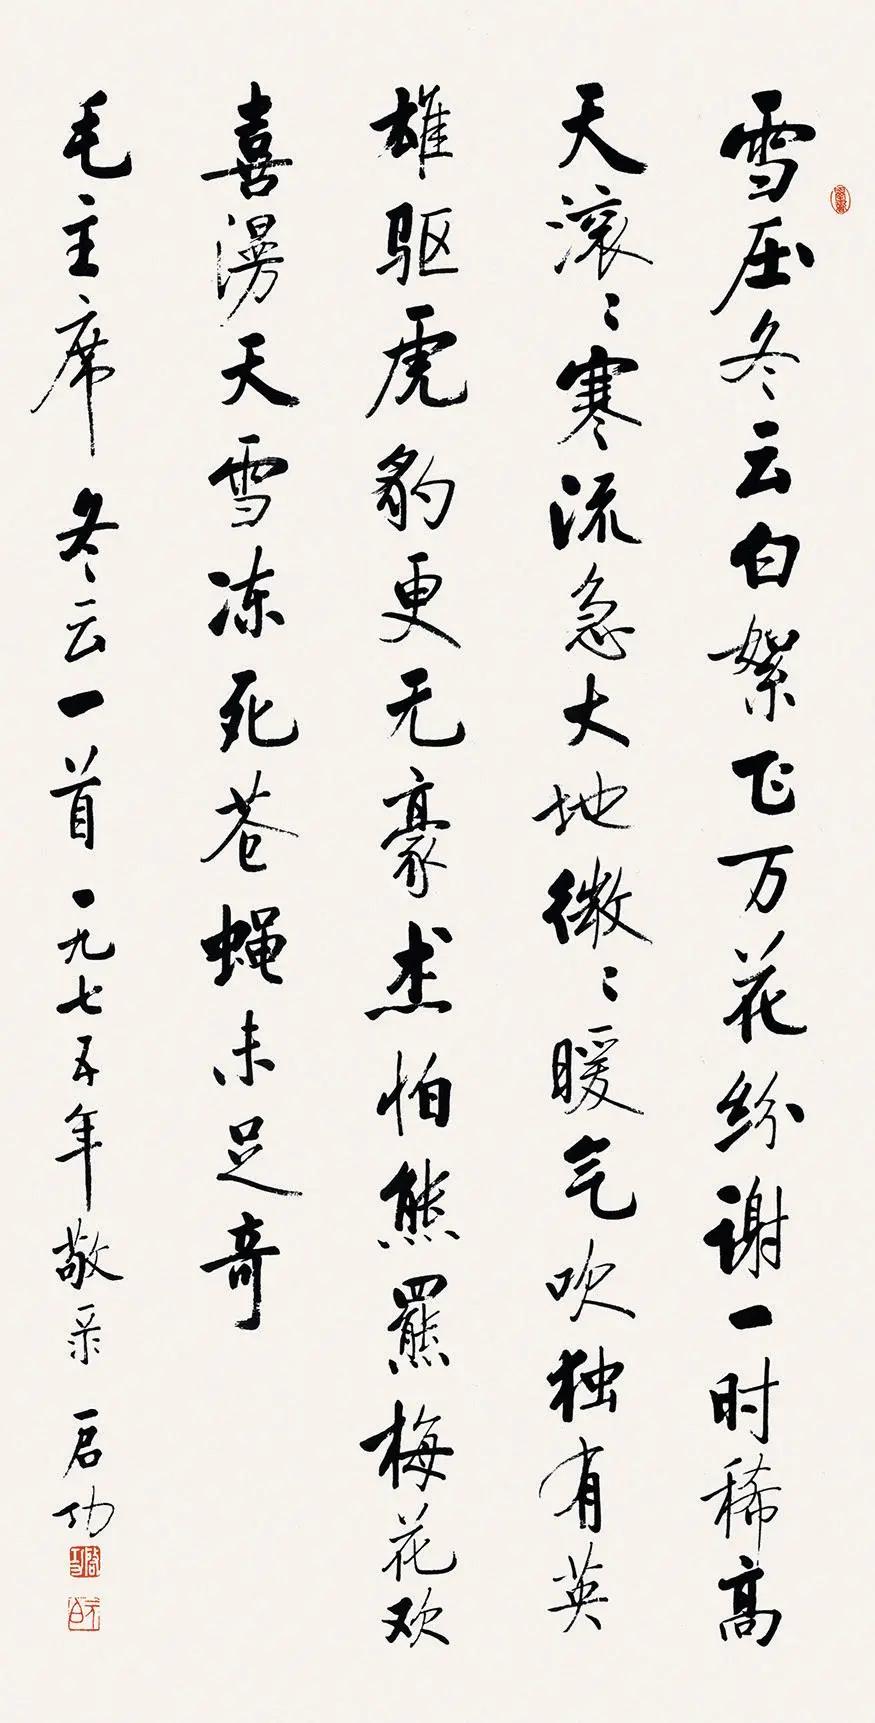 雪压冬云白絮飞万花纷谢一时稀高
天滚〻寒流急大地微〻暖气吹独有英
雄驱虎豹更无豪杰怕熊罴梅花欢
喜漫天雪冻死苍蝇未足奇
毛主席冬云一首一九七五年敬录 启功
启功
元白